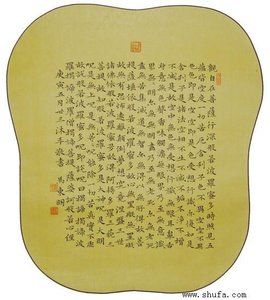 觀自在菩薩行深般若波羅蜜多時照見五
蘊皆空度一切苦厄舍利子色不異空空不異
色色即是空空即是色受想行識亦復如是
舍利子是諸法空相不生不滅不垢不淨不增
不減是故空中無色無受想行識無眼耳鼻舌
身意無色聲香味觸法無眼界乃至無意識界
無無明亦無無明盡乃至無老死亦無老死
盡無苦集滅道無智亦無得以無所得故菩
提薩埵依般若波羅蜜多故心無罣礙無罣礙
故無有恐怖遠離顛倒夢想究竟涅槃三世
諸佛依般若波羅蜜多故得阿耨多羅三藐三
菩提故知般若波羅蜜多是大神呪是大明
呪是無上呪是無等等呪能除一切苦真實不虛
故說般若波羅蜜多呪即說呪曰揭諦揭諦波羅
揭諦波羅僧揭諦菩提薩婆訶般若心經
庚寅五月廿三沐手敬書 東明
www.shufa.com